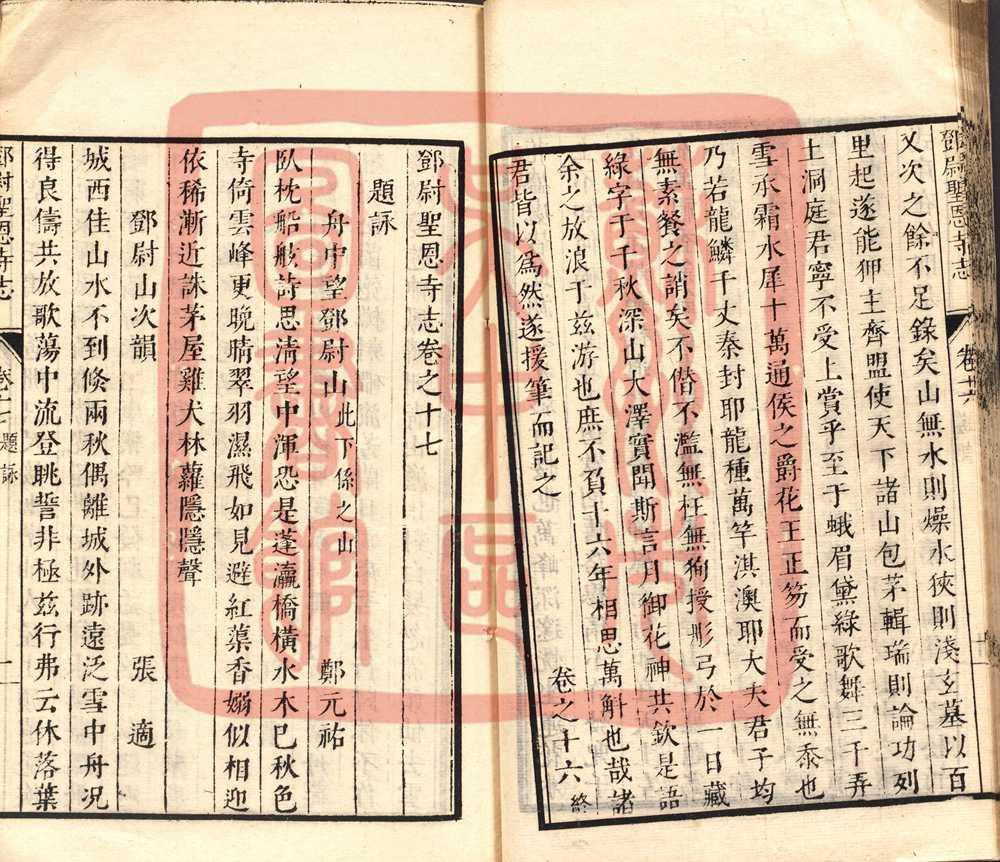 鄧尉聖恩寺志 卷十六
又次之餘不足錄矣山無水則燥水狹則淺玄墓以百
里起遂能狎主齊盟使天下諸山包茅輯瑞則論功列
土洞庭君寧不受上賞乎至于蛾眉黛綠歌舞三千弄
雪承霜水犀十萬通侯之爵花王正笏而受之無忝也
乃若龍鱗千丈秦封耶龍種萬竿淇澳耶大夫君子均
無素餐之誚矣不僭不濫無枉無狥授彤弓於一日藏
綠字于千秋深山大澤實聞斯言月御花神共欽是語
余之放浪于兹游也庶不負十六年相思萬斛也哉諸
君皆以爲然遂援筆而記之
卷之十六 終
鄧尉聖恩寺志卷之十七
題詠
舟中望鄧尉山 此下係之山 鄭元祐
臥枕船舷詩思淸望中渾恐是蓬瀛橋橫水木已秋色
寺倚雲峰更晚晴翠羽濕飛如見避紅蕖香嫋似相迎
依稀漸近誅茅屋雞犬林蘿隱隱聲
鄧尉山次韻 張適
城西佳山水不到倏兩秋偶離城外跡遠泛雪中舟況
得良儔共放歌蕩中流登眺誓非極兹行弗云休落葉
鄧尉聖恩寺志 卷十七 題詠 一